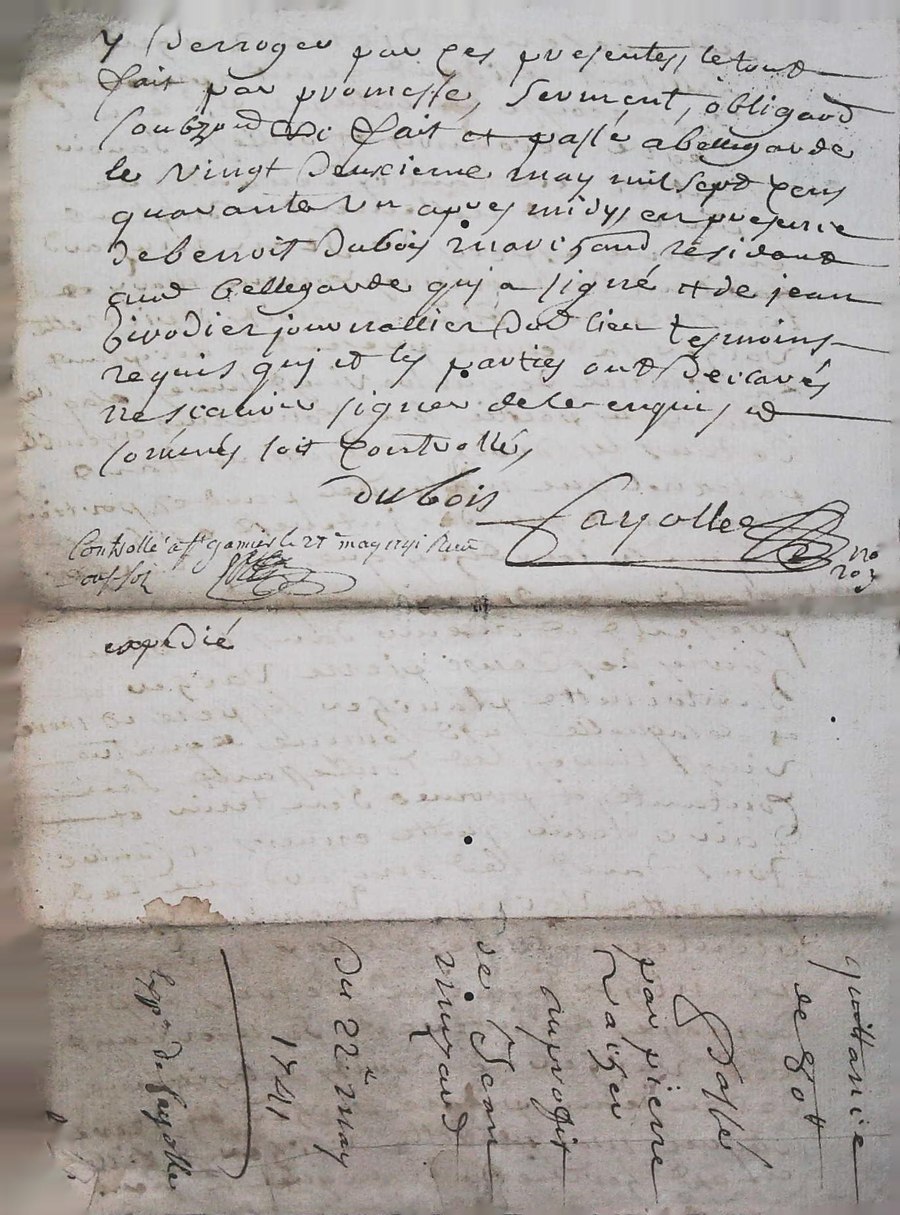 y derroger par ces presentes, le tout
fait par promesse, serment, obligaõn
soubz &c fait et passé a bellegarde
le vingt deuxieme may mil sept cens
quarante un apres midy en presence
de benoit dubois marichand résidant
aud bellegarde qui a signé et de jean
journallier dud lieu tesmoins
requis qui et les parties ont declarés
ne sçavoir signer de ce enquis et
sommés soit controllé,
dubois
fayolle
Controllé a st galmier le 27 may 1741 Receu
douze sols
expedié
quittance
de 80tt
passé
par pierre
au proffit
de Jean
du 22e may
1741
Exp. de fayolle